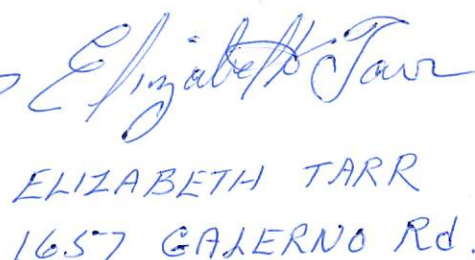 Elizabeth Tarr
ELIZABETH TARR
1657 GALERNO Rd.